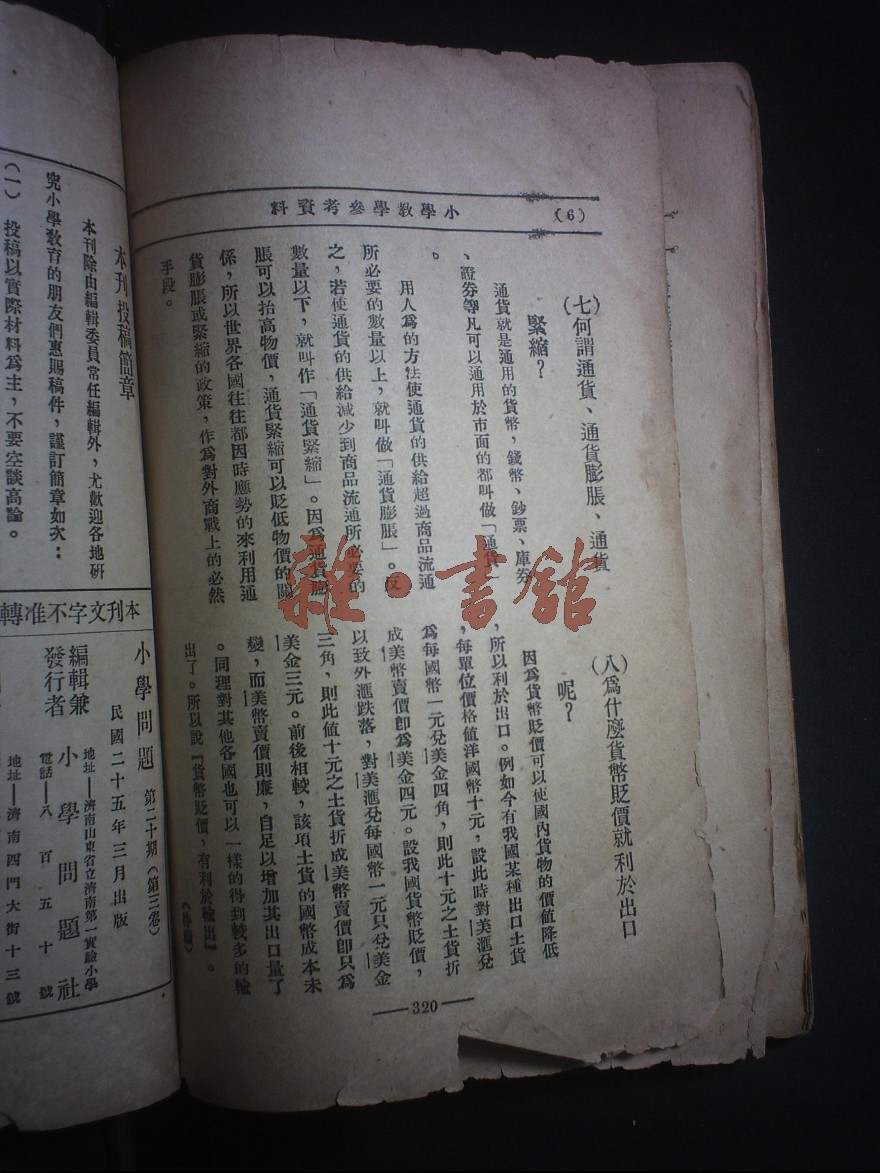 小學教學參考資料
(6)
(七)何謂通貨、通貨膨脹、通貨
緊縮?
通貨就是通用的貨幣,錢幣、鈔票、庫券
、證券等凡可以通用於市面的都叫做「通貨」
。
用人爲的方法使通貨的供給超過商品流通
所必要的數量以上,就叫做「通貨膨脹」。反
之,若使通貨的供給減少到商品流通所必要的
數量以下,就叫作「通貨緊縮」。因爲通貨膨
脹可以抬高物價,通貨緊縮可以貶低物價的關
係,所以世界各國往往都因時應勢的來利用通
貨膨脹或緊縮的政策,作爲對外商戰上的必然
手段。
(八)爲什麼貨幣貶價就利於出口
呢?
因爲貨幣貶價可以使國內貨物的價値降低
,所以利於出口。例如今有我國某種出口土貨
,每單位價格値洋國幣十元,設此時對美滙兌
爲每國幣一元兌美金四角,則此十元之土貨折
成美幣賣價卽爲美金四元。設我國貨幣貶價,
以致外滙跌落,對美滙兌每國幣一元只兌美金
三角,則此値十元之土貨折成美幣賣價卽只爲
美金三元。前後相較,該項土貨的國幣成本未
變,而美幣賣價則廉,自足以增加其出口量了
。同理對其他各國也可以一樣的得到較多的輸
出了。所以說『貨幣貶價,有利於輸出』。
(待續)
—320—
本刊投稿簡章
本刊除由編輯委員常任編輯外,尤歡迎各地研
究小學教育的朋友們惠賜稿件,謹訂簡章如次:
(一)投稿以實際材料爲主,不要空談高論。
本刊文字不准轉
小學問題 第二十期(第三卷)
民國二十五年三月出版
編輯兼發行者 小學問題社
地址——濟南山東省立濟南第一實驗小學
電話——八百五十號
地址——濟南四門大街十三號
雜·書館